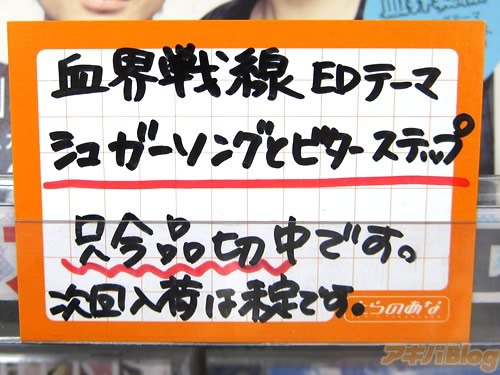 血界戦線 EDテーマ
シュガーソングとビターステップ
只今品切中です。
次回入荷は未定です。
とらのあな
アキバBlog